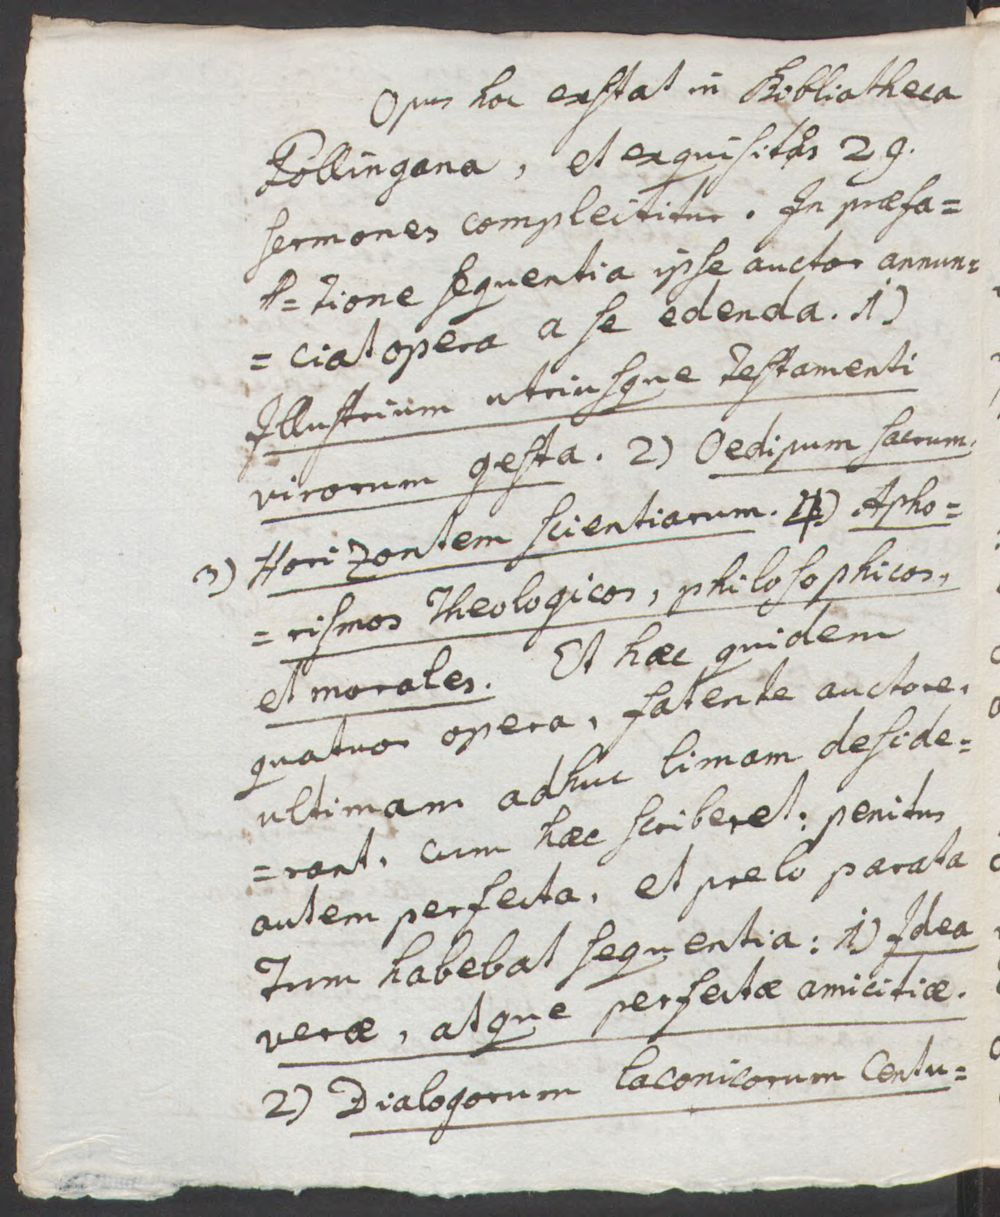 Opus hoc exstat in Bibliotheca
Pollingana, et exquisitas 29.
sermones complectitur. In præfa=
=tione sequentia ipse auctor annun=
=ciat opera a se edenda. 1)
Illustrium utriusque Testamenti
virorum gesta. 2) Oedipum sacrum.
3) Horizontem scientiarum. 4) Apho=
=rismos Theologicos, philosophicos,
et morales. Et hæc quidem
quatuor opera, fatente auctore,
ultimam adhuc limam deside=
=rant, cum hæc scriberet: penitus
autem perfecta, et prelo parata
Tum habebat sequentia: 1) Idea
veræ, atque perfectæ amicitiæ.
2) Dialogorum laconicorum Centu=